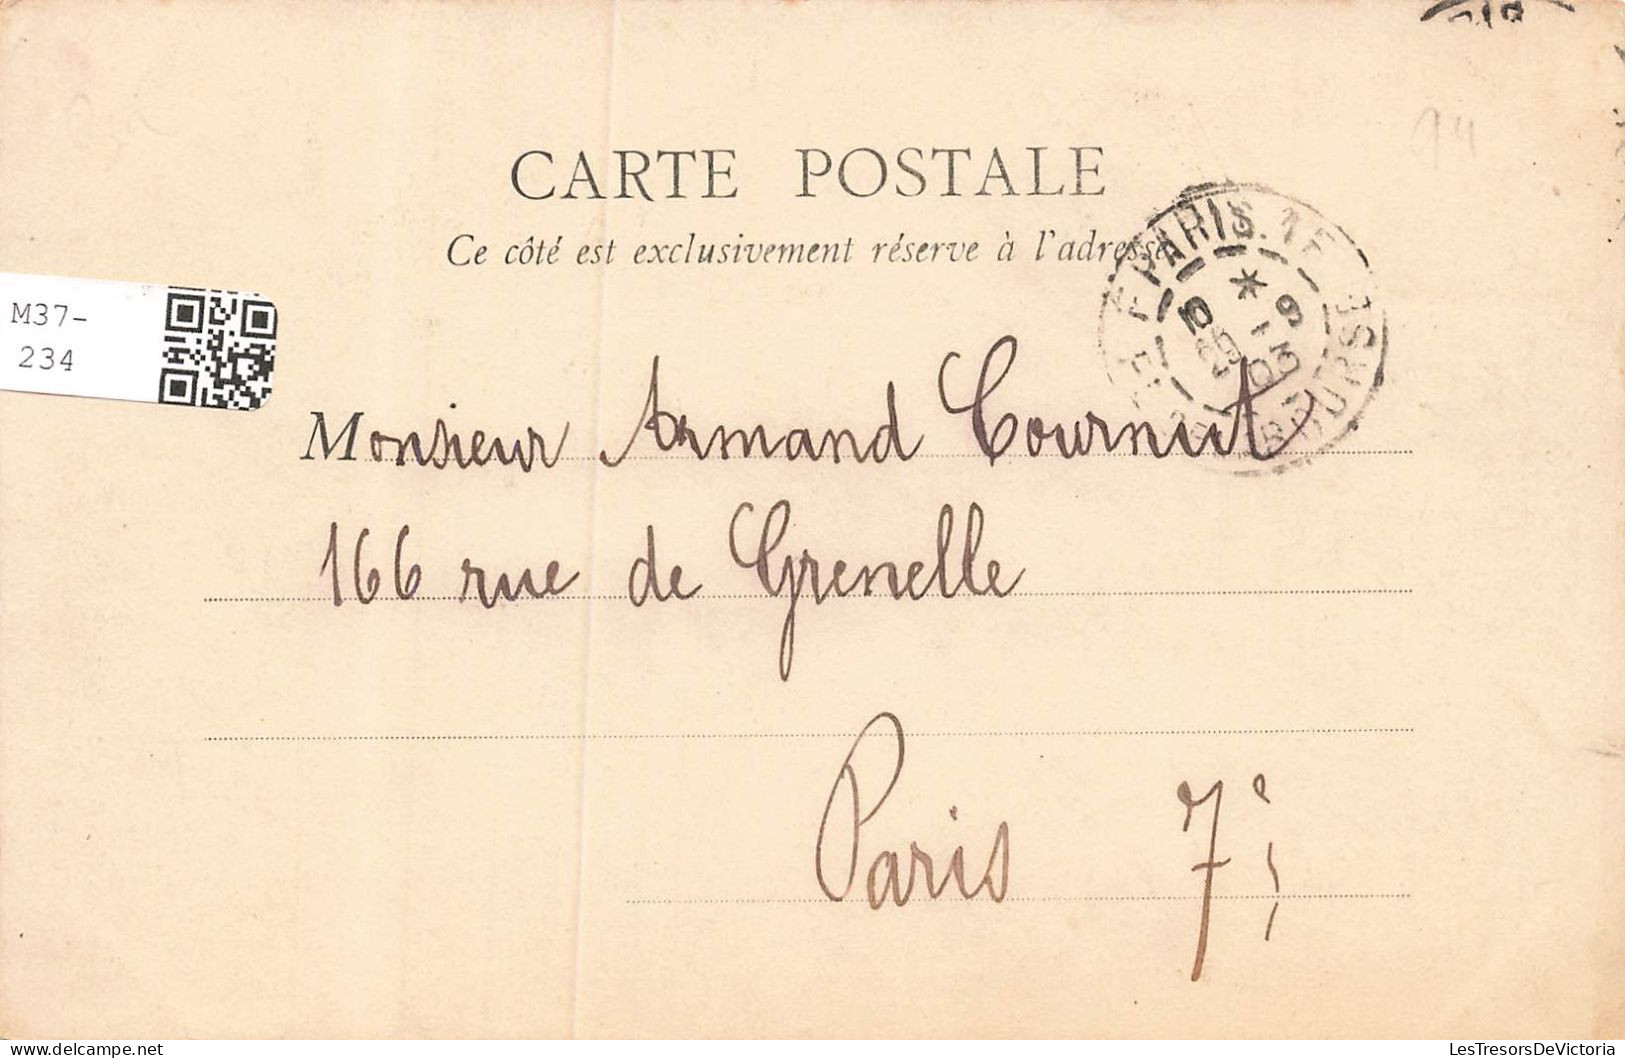 CARTE POSTALE
Ce côté est exclusivement réservé à l'adresse
PARIS. 1
BOURSE
* 9
10
03
94
M37-
234
Monsieur Armand Cournut
166 rue de Grenelle
Paris 7e
LesTresorsDeVictoria